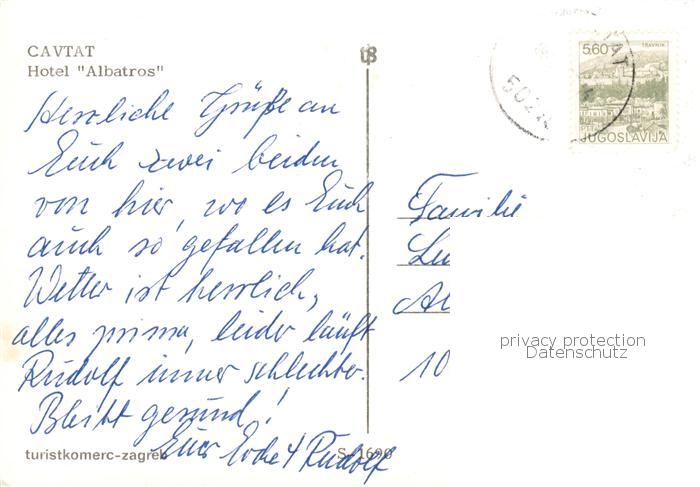 CAVTAT
Hotel "Albatros"
Herrliche Grüße an
Euch zwei beiden
von hier, wo es Euch
auch so gefallen hat.
Wetter ist herrlich,
alles prima, leider läuft
Rudolf immer schlechter.
Bleibt gesund!
Euer Rudolf
turistkomerc-zagreb
S-1690
5.60
TRAVNIK
JUGOSLAVIJA
Familie
10
privacy protection
Datenschutz